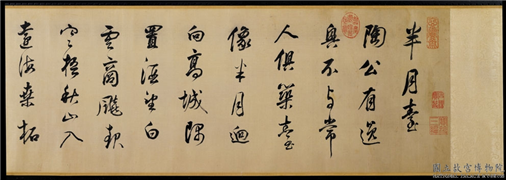 半月臺
陶公有逸
興不与常
人俱築臺
像半月迥
向高城隅
置酒望白
雲商飈起
寒梧秋山入
遠海桑柘
國立故宮博物院